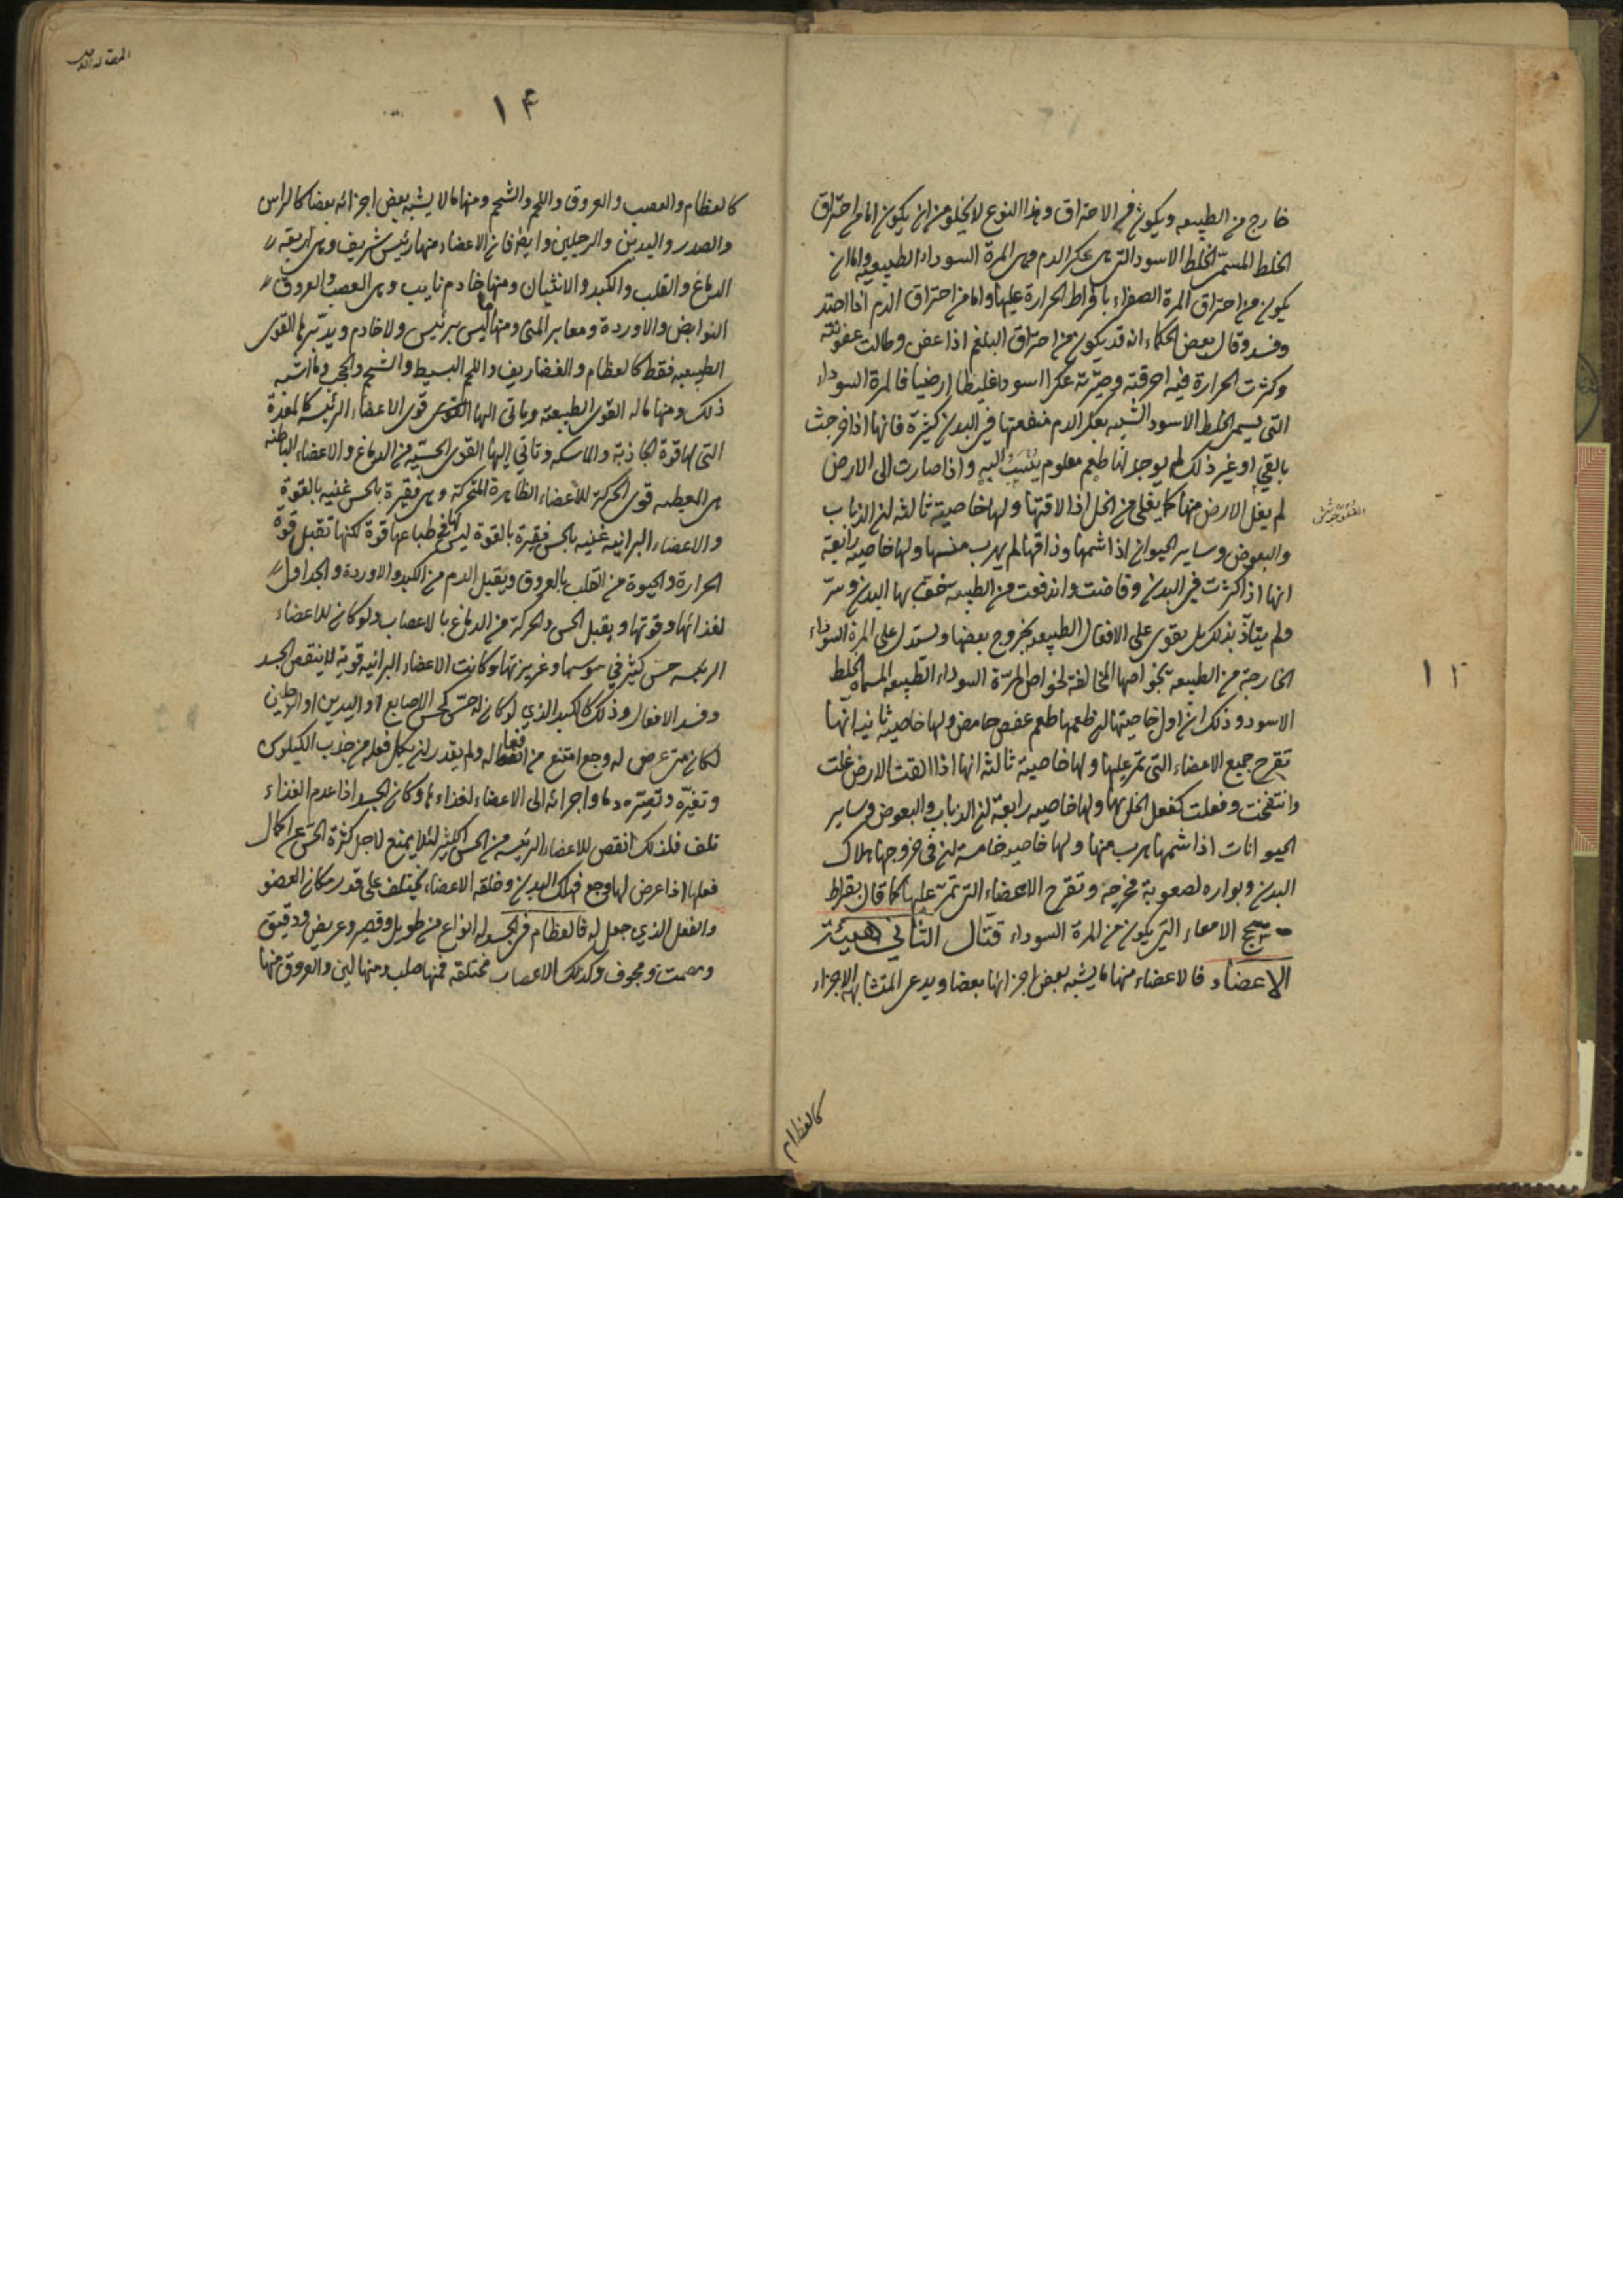 خارج من الطبيعه ويكون في الاحتراق وهذا النوع لا يخلو من ان يكون اما من احتراق
الخلط المسمّى الخلط الاسود التي هى عكر الدم وهى المرة السوداء الطبيعيه واما ان
يكون من احتراق المرة الصفراء بافراط الحرارة عليها واما من احتراق الدم اذا احتد
وفسد وقال بعض الحكماء انه قد يكون من احتراق البلغم اذا عفن وطالت عفونته
وكثرت الحرارة فيه احرقته وصيّرته عكرا اسودا غليظا ارضيا فالمرة السوداء
التى يسمى الخلط الاسود الشبيه بعكر الدم منفعتها في البدن كثيرة فانها اذا خرجت
بالقي او غير ذلك لم يوجد لها طعم معلوم ينسب اليه واذا صارت الى الارض
لم يغل الارض منها كما يغلى من الخل اذا لاقتها ولها خاصية ثالثه ان الذباب
والبعوض وساير الحيوان اذا شمها وذاقها لم يهرب منها ولها خاصيه رابعة
انها اذا كثرت في البدن وفاضت واندفعت من الطبيعه خف بها البدن وسرّ
ولم يتاذّ بذلك بل يقوى على الافعال الطبيعه بخروج بعضها ويستدل على المرة السوداء
الخارجة من الطبيعه بخواصها المخالفة لخواص المرّة السوداء الطبيعه المسماه الخلط
الاسود وذلك ان اول خاصيتها ان طعمها طعم عفص حامض ولها خاصية ثانيه انها
تقرح جميع الاعضاء التى تمر عليها ولها خاصية ثالثة انها اذا القت الارض غلت
وانتفخت وفعلت كفعل الخل بها ولها خاصيه رابعة ان الذباب والبعوض وساير
الحيوانات اذا شمها يهرب منها ولها خاصيه خامسة ان فى خروجها هلاك
البدن وبواره لصعوبة مخرجه وتقرح الاعضاء التى تمرّ عليها كما قال بقراط
سحج الامعاء التي يكون من المرة السوداء قتّال الثاني هيئة
الاعضاء فالاعضاء منها ما يشبه بعض اجزائها بعضا ويدعى المتشابهة الاجزاء
١٣
كالعظام
١۴
كالعظام والعصب والعروق واللحم والشحم ومنها ما لا يشبه بعض اجزائه بعضا كالراس
والصدر واليدين والرجلين وايضا فان الاعضاء منها رئيس شريف وهى اربعه
الدماغ والقلب والكبد والانثيان ومنها خادم نايب وهى العصب والعروق
النوابض والاوردة ومعابر المنى ومنها ما ليس برئيس ولا خادم ويدبّرها القوى
الطبيعيه فقط كالعظام والغضاريف واللحم البسيط والشحم والحجب وما اشبه
ذلك ومنها ما له القوى الطبيعه وياتى الها القوى قوى الاعضاء الرئيسه كالمعدة
التى لها قوة الجاذبة والماسكه وتاتي اليها القوى الحسية من الدماغ والاعضاء الباطنه
هى المعطيه قوى الحركة للاعضاء الظاهرة المتحركة وهى فقيرة بالحس غنيه بالقوة
والاعضاء البرانيه غنيه بالحس فقيرة بالقوة ليس لها في طباعها قوة لكنها تقبل قوة
الحرارة والحيوة من القلب بالعروق ويقبل الدم من الكبد والاوردة والجداول
لغذائها وقوتها ويقبل الحس والحركة من الدماغ بالاعصاب ولو كان للاعضاء
الرئيسه حس كثير في سوسها وغريزتها وكانت الاعضاء البرانيه قوية لانتقص الجسد
وفسد الافعال وذلك كالكبد الذي لو كان له حس كحس الاصابع او اليدين او الرجلين
لكان متى عرض له وجع امتنع من افعاله ولم يقدر ان يكمل فعله من جذب الكيلوس
وتغيّره وتميّزه دما واجرائه الى الاعضاء لغذاءها وكان الجسد اذا عدم الغذاء
تلف فلذلك انقص للاعضاء الرئيسه من الحس الكثير لئلا يمتنع لاجل كثرة الحس عن اكمال
فعلها اذا عرض لها وجع فيهلك البدن وخلقه الاعضاء يختلف على قدر مكان العضو
والفعل الذي جعل له فالعظام في الجسد له انواع من طويل وقصير وعريض ودقيق
ومصمت ومجوف وكذلك الاعصاب مختلفه فمنها صلب ومنها لين والعروق منها